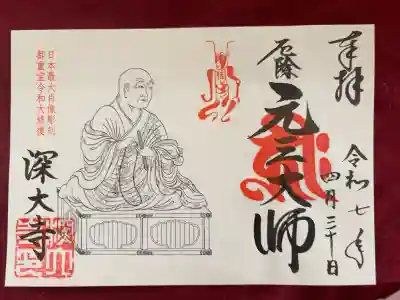 奉拝
令和七年
四月三十日
厄除
元三大師
日本最大肖像彫刻
都重宝令和大修復
深大寺